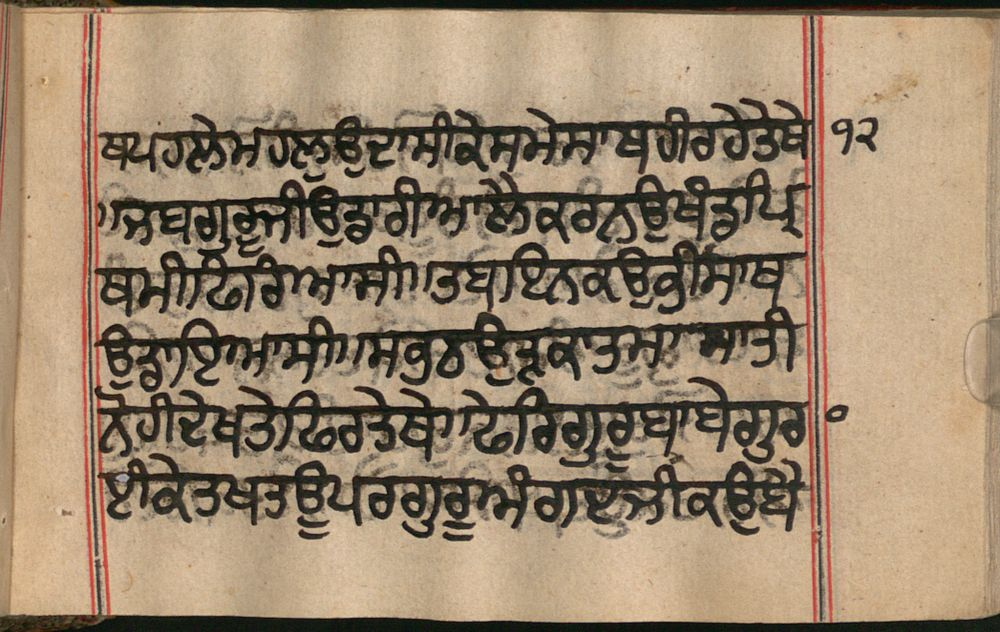 ਥਪਹਲੇਮਹਲੁਉਦਾਸੀਕੇਸਮੇਸਾਥਹੀਰਹੇਤੇਥੇ ੧੨
॥ਜਬਗੁਰੂਜੀਉਡਾਰੀਆਲੈਕਰਿਨਉਖੰਡਪ੍ਰਿ
ਥਮੀਫਿਰਿਆਸੀ॥ਤਬਇਨਕਉਕੀਸਾਥ
ਉਡਾਇਆਸੀ॥ਸਕੁਠਉਤੁਕਾਤਮਾਸਾਤੀ
ਨੋਹੀਦੇਖਤੇਫਿਰਤੇਥੇ॥ਫੇਰਿਗੁਰੂਬਾਬੇਗੁਰ
ਈਕੇਤਖਤਊਪਰਗੁਰੂਅੰਗਦਜੀਕਉਬੈ